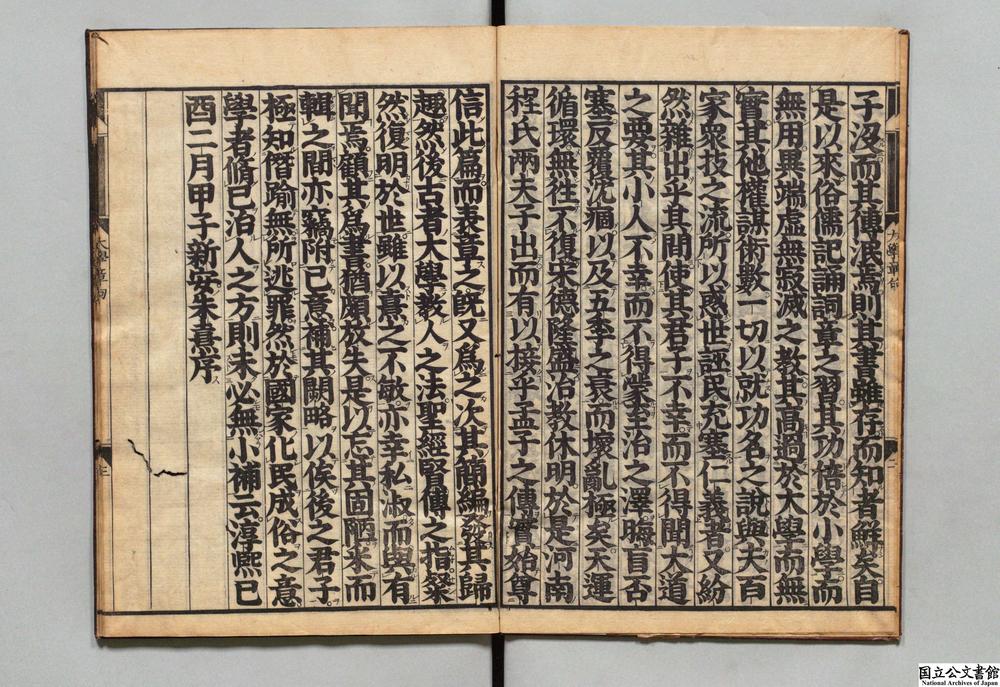 子沒而其傳泯焉則其書雖存而知者鮮矣自
是以來俗儒記誦詞章之習其功倍於小學而
無用異端虛無寂滅之教其高過於大學而無
實其他權謀術數一切以就功名之說與夫百
家眾技之流所以惑世誣民充塞仁義者又紛
然雜出乎其間使其君子不幸而不得聞大道
之要其小人不幸而不得蒙至治之澤晦盲否
塞反覆沈痼以及五季之衰而壞亂極矣天運
循環無往不復宋德隆盛治教休明於是河南
程氏兩夫子出而有以接乎孟子之傳實始尊
信此篇而表章之旣又爲之次其簡編發其歸
趣然後古者大學教人之法聖經賢傳之指粲
然復明於世雖以熹之不敏亦幸私淑而與有
聞焉顧其爲書猶頗放失是以忘其固陋采而
輯之間亦竊附己意補其闕略以俟後之君子
極知僭踰無所逃罪然於國家化民成俗之意
學者脩己治人之方則未必無小補云淳熙己
酉二月甲子新安朱熹序
大學章句
二
大學章句
三
国立公文書館
National Archives of Japan